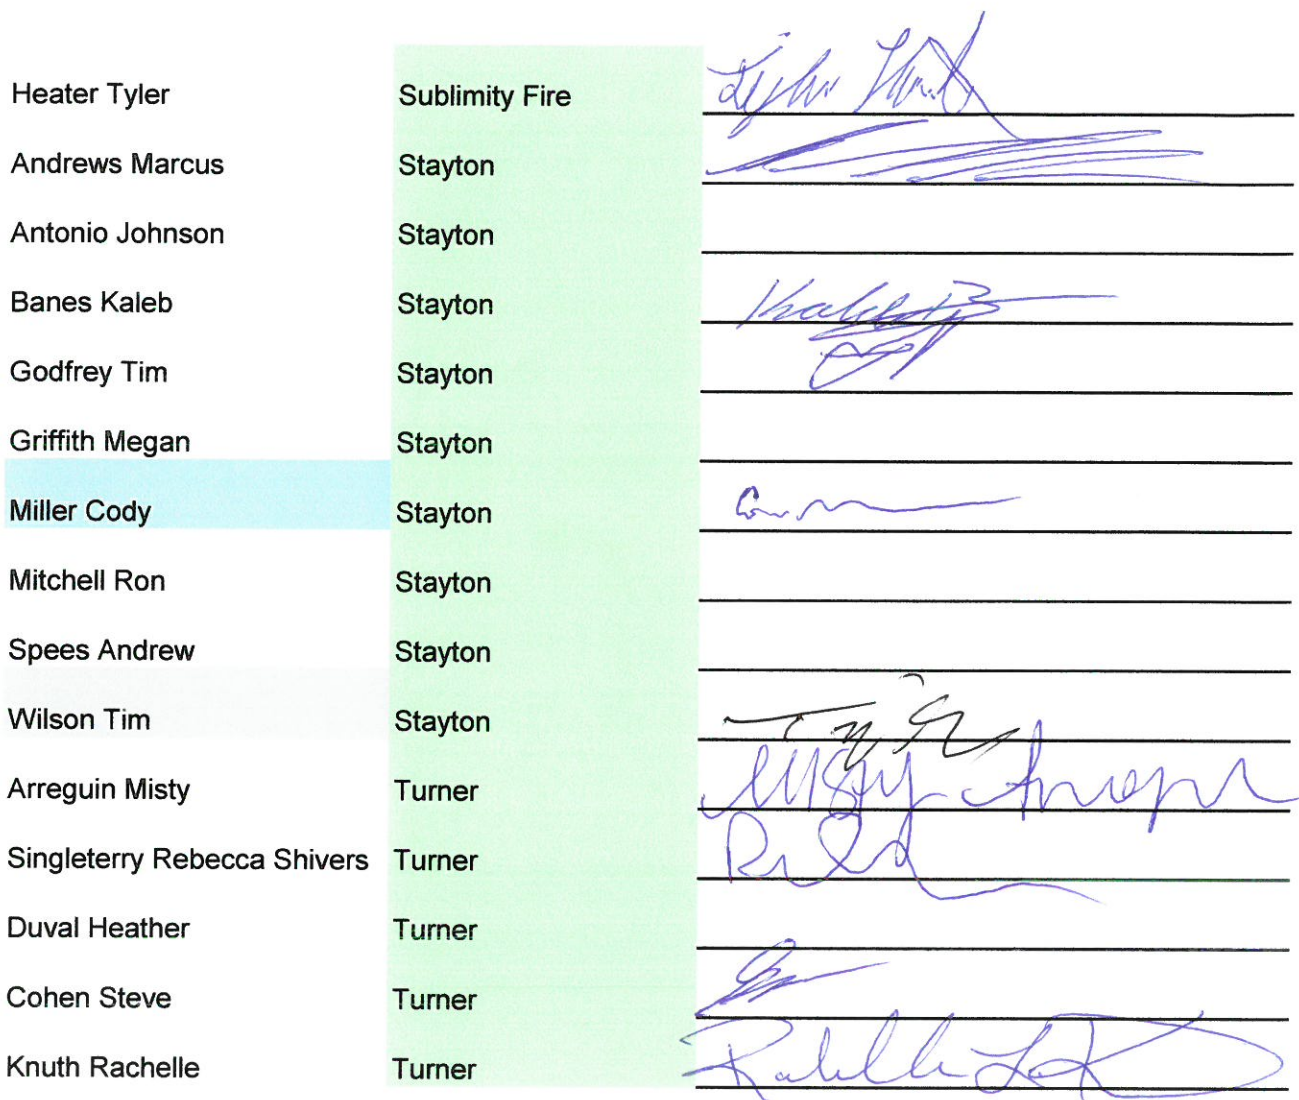 Heater Tyler Sublimity Fire Tyler
Andrews Marcus Stayton
Antonio Johnson Stayton
Banes Kaleb Stayton Kaleb B
Godfrey Tim Stayton
Griffith Megan Stayton
Miller Cody Stayton
Mitchell Ron Stayton
Spees Andrew Stayton
Wilson Tim Stayton
Arreguin Misty Turner Misty
Singleterry Rebecca Shivers Turner
Duval Heather Turner
Cohen Steve Turner
Knuth Rachelle Turner